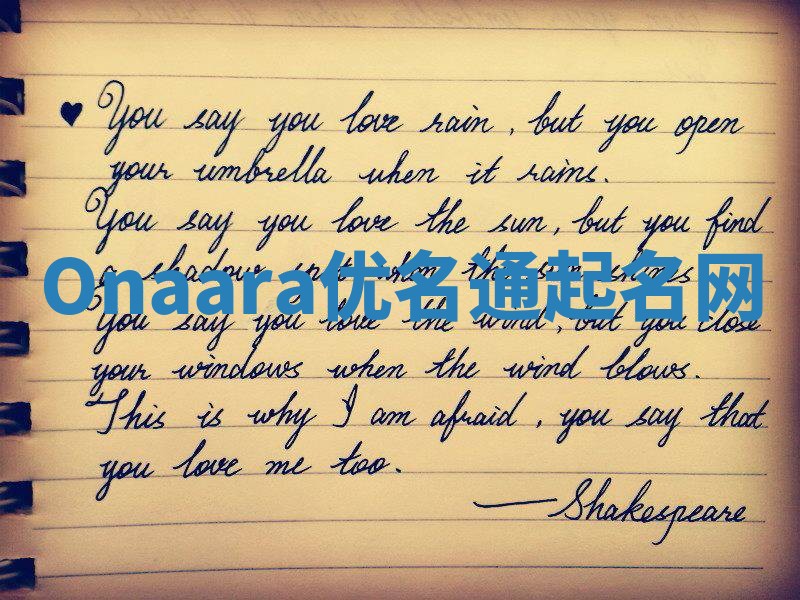 ♥ You say you love rain, but you open
your umbrella when it rains.
You say you love the sun, but you find
a shadow spot when the sun shines
Onaara优名通起名网
You say you love the wind, but you close
your windows when the wind blows.
This is why I am afraid, you say that
you love me too.
—Shakespeare